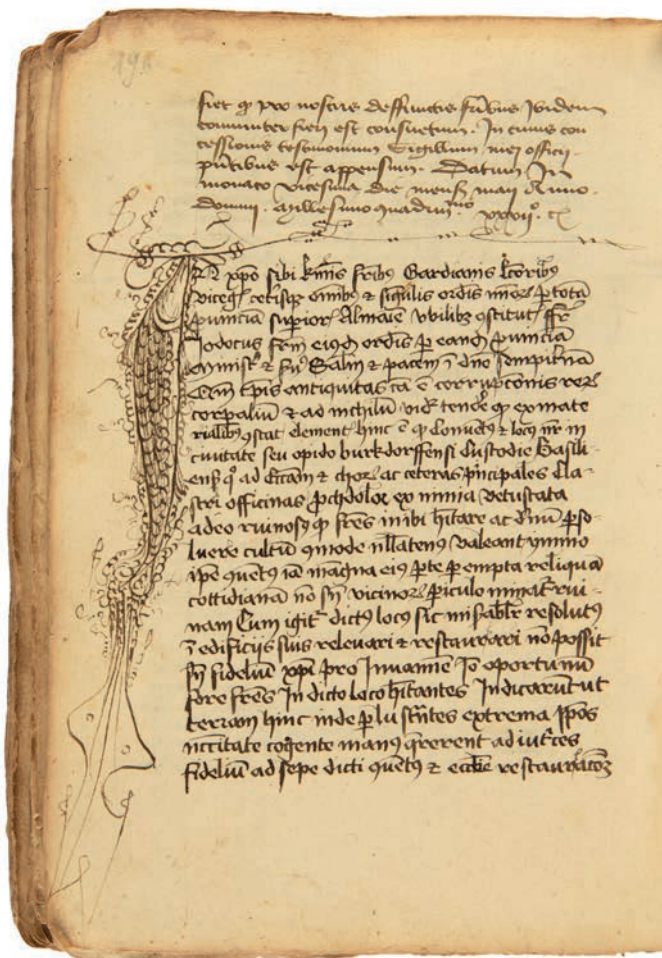 fiet q pro nostris deffunctis fribus Ibidem
communiter fieri est consuetum. In cuius con
cessionis testimonium Sigillum mei officij
pntibus est appensum. Datum In
monaco vicesima die mensis maij Anno
domini millesimo quadrin^mo xxvij^o
xpo sibi kmis fribus Gardianis lcoribus
viceg cetisque omibus & singulis ordis mior p totā
puinciā superior Almaie vbilibz 9stitut ffr
Jodocus frm eiusdem ordis p eandē puinciā
minist & Salm & pacem ī dno sempitnā
Cum tpis antiquitas cā ē corrupconis rer
corpaliū & ad nichilū tende q ex mate
rialibus 9stat element hinc ē q Conuet9 & loc9 nr in
ciuitate seu opido burkdorffensi Custodie Basili
ens ad Eccām & chor ac ceteras pncipales Cla
stri officinas pchdolor ex nimia vetustata
adeo ruinos9 q fres inibi hitare ac pso
luere cultū 9mode nllaten9 valeant ymmo
ipe 9uet9 iā magna ei9 pte p empta reliquā
cottidianā nō sn vicinor piculo minat rui
nam Cum igit dict9 locus sic misablr resolut9
ī edificijs suis releuari & restaurari nō possit
sn fideliū xpi pro Inuamine Io oportunū
fore fres In dicto loco hitantes Indicarūt ut
terram hinc inde plustntes extrema Ipos
nccitate cogente man9 qrerent adiutces
fideliū ad sepe dicti 9uet9 & eccīe restauracōz